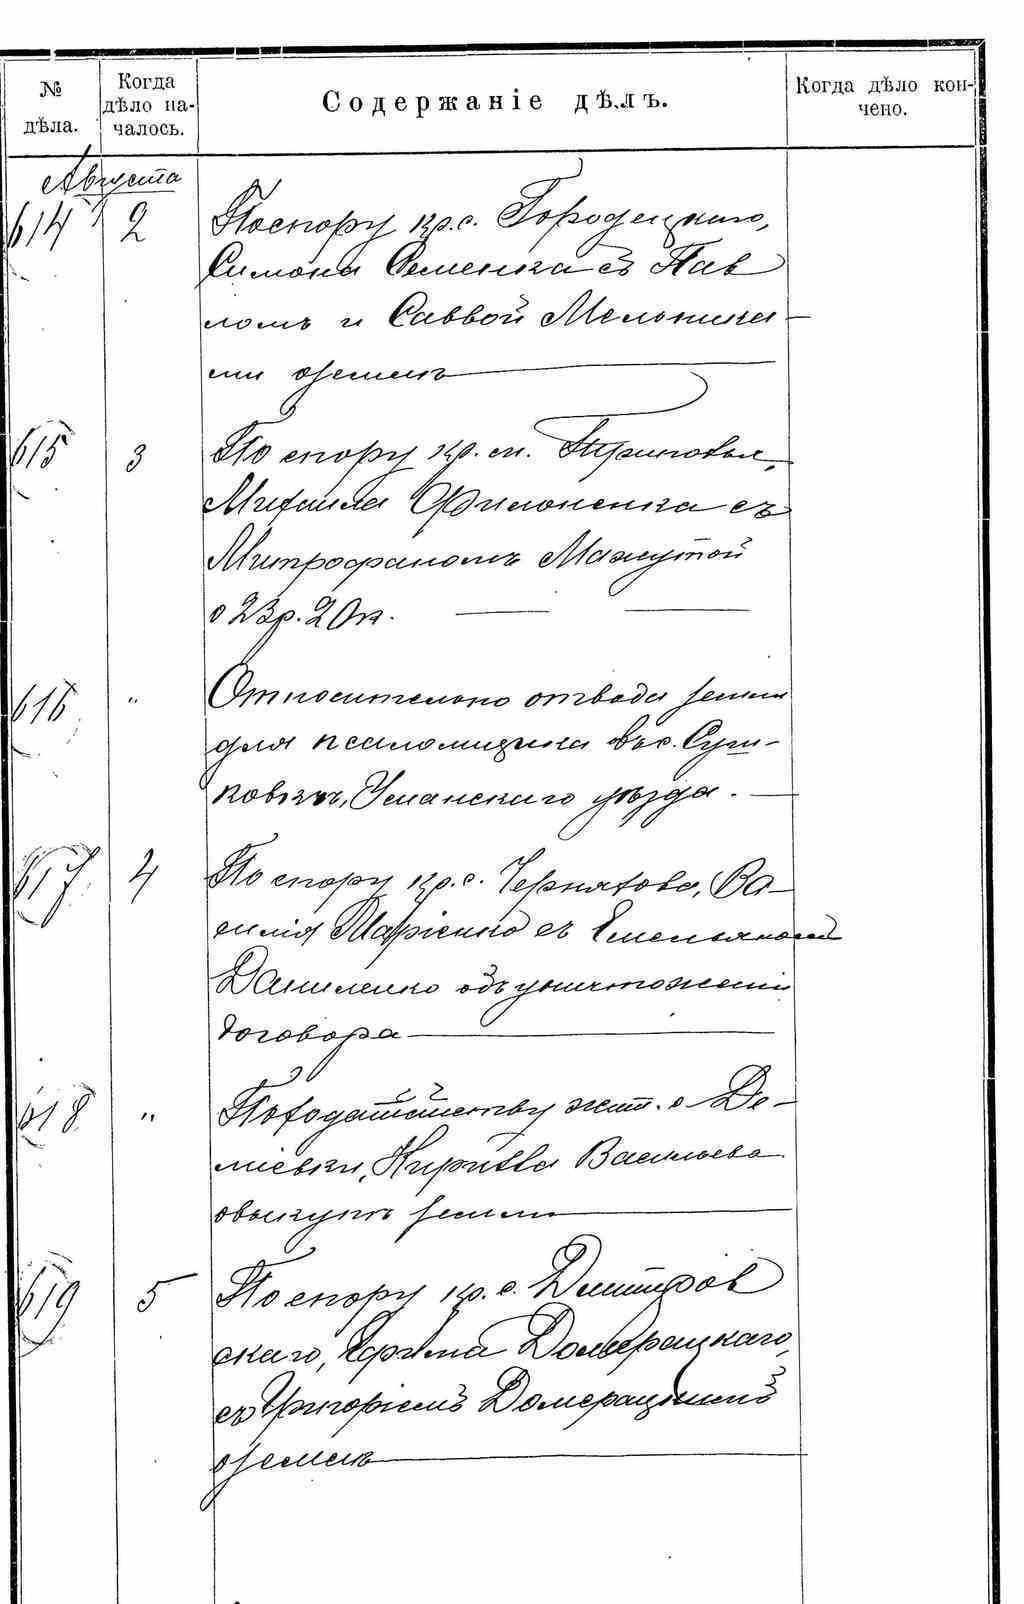 № дѣла.
Когда дѣло на-
чалось.
Содержаніе дѣлъ.
Когда дѣло кон-
чено.
Августа
614 2 По спору кр. с. Городецкаго,
Симона Семенка съ Пав
ломъ и Саввой Мельника-
ми о землѣ
615 3 По спору кр. м.
Михаила Филоненка съ
Митрофаномъ Мажутой
о 23 р. 20 к.
616 " Относительно отвода земли
для псаломщика въ с. Суш-
ковкѣ, Уманскаго уѣзда.
617 4 По спору кр. с. Чернятова, Ва-
силія Марѣенко съ Емельяномъ
Даниленко объ уничтоженіи
договора
618 " По ходатайству жит. с Де-
міевки, Кирилла Васильева
о выкупѣ земли
619 5 По спору кр. с. Дмитров
скаго, Ефима Домерацкаго,
съ Григоріемъ Домерацкимъ
о землѣ